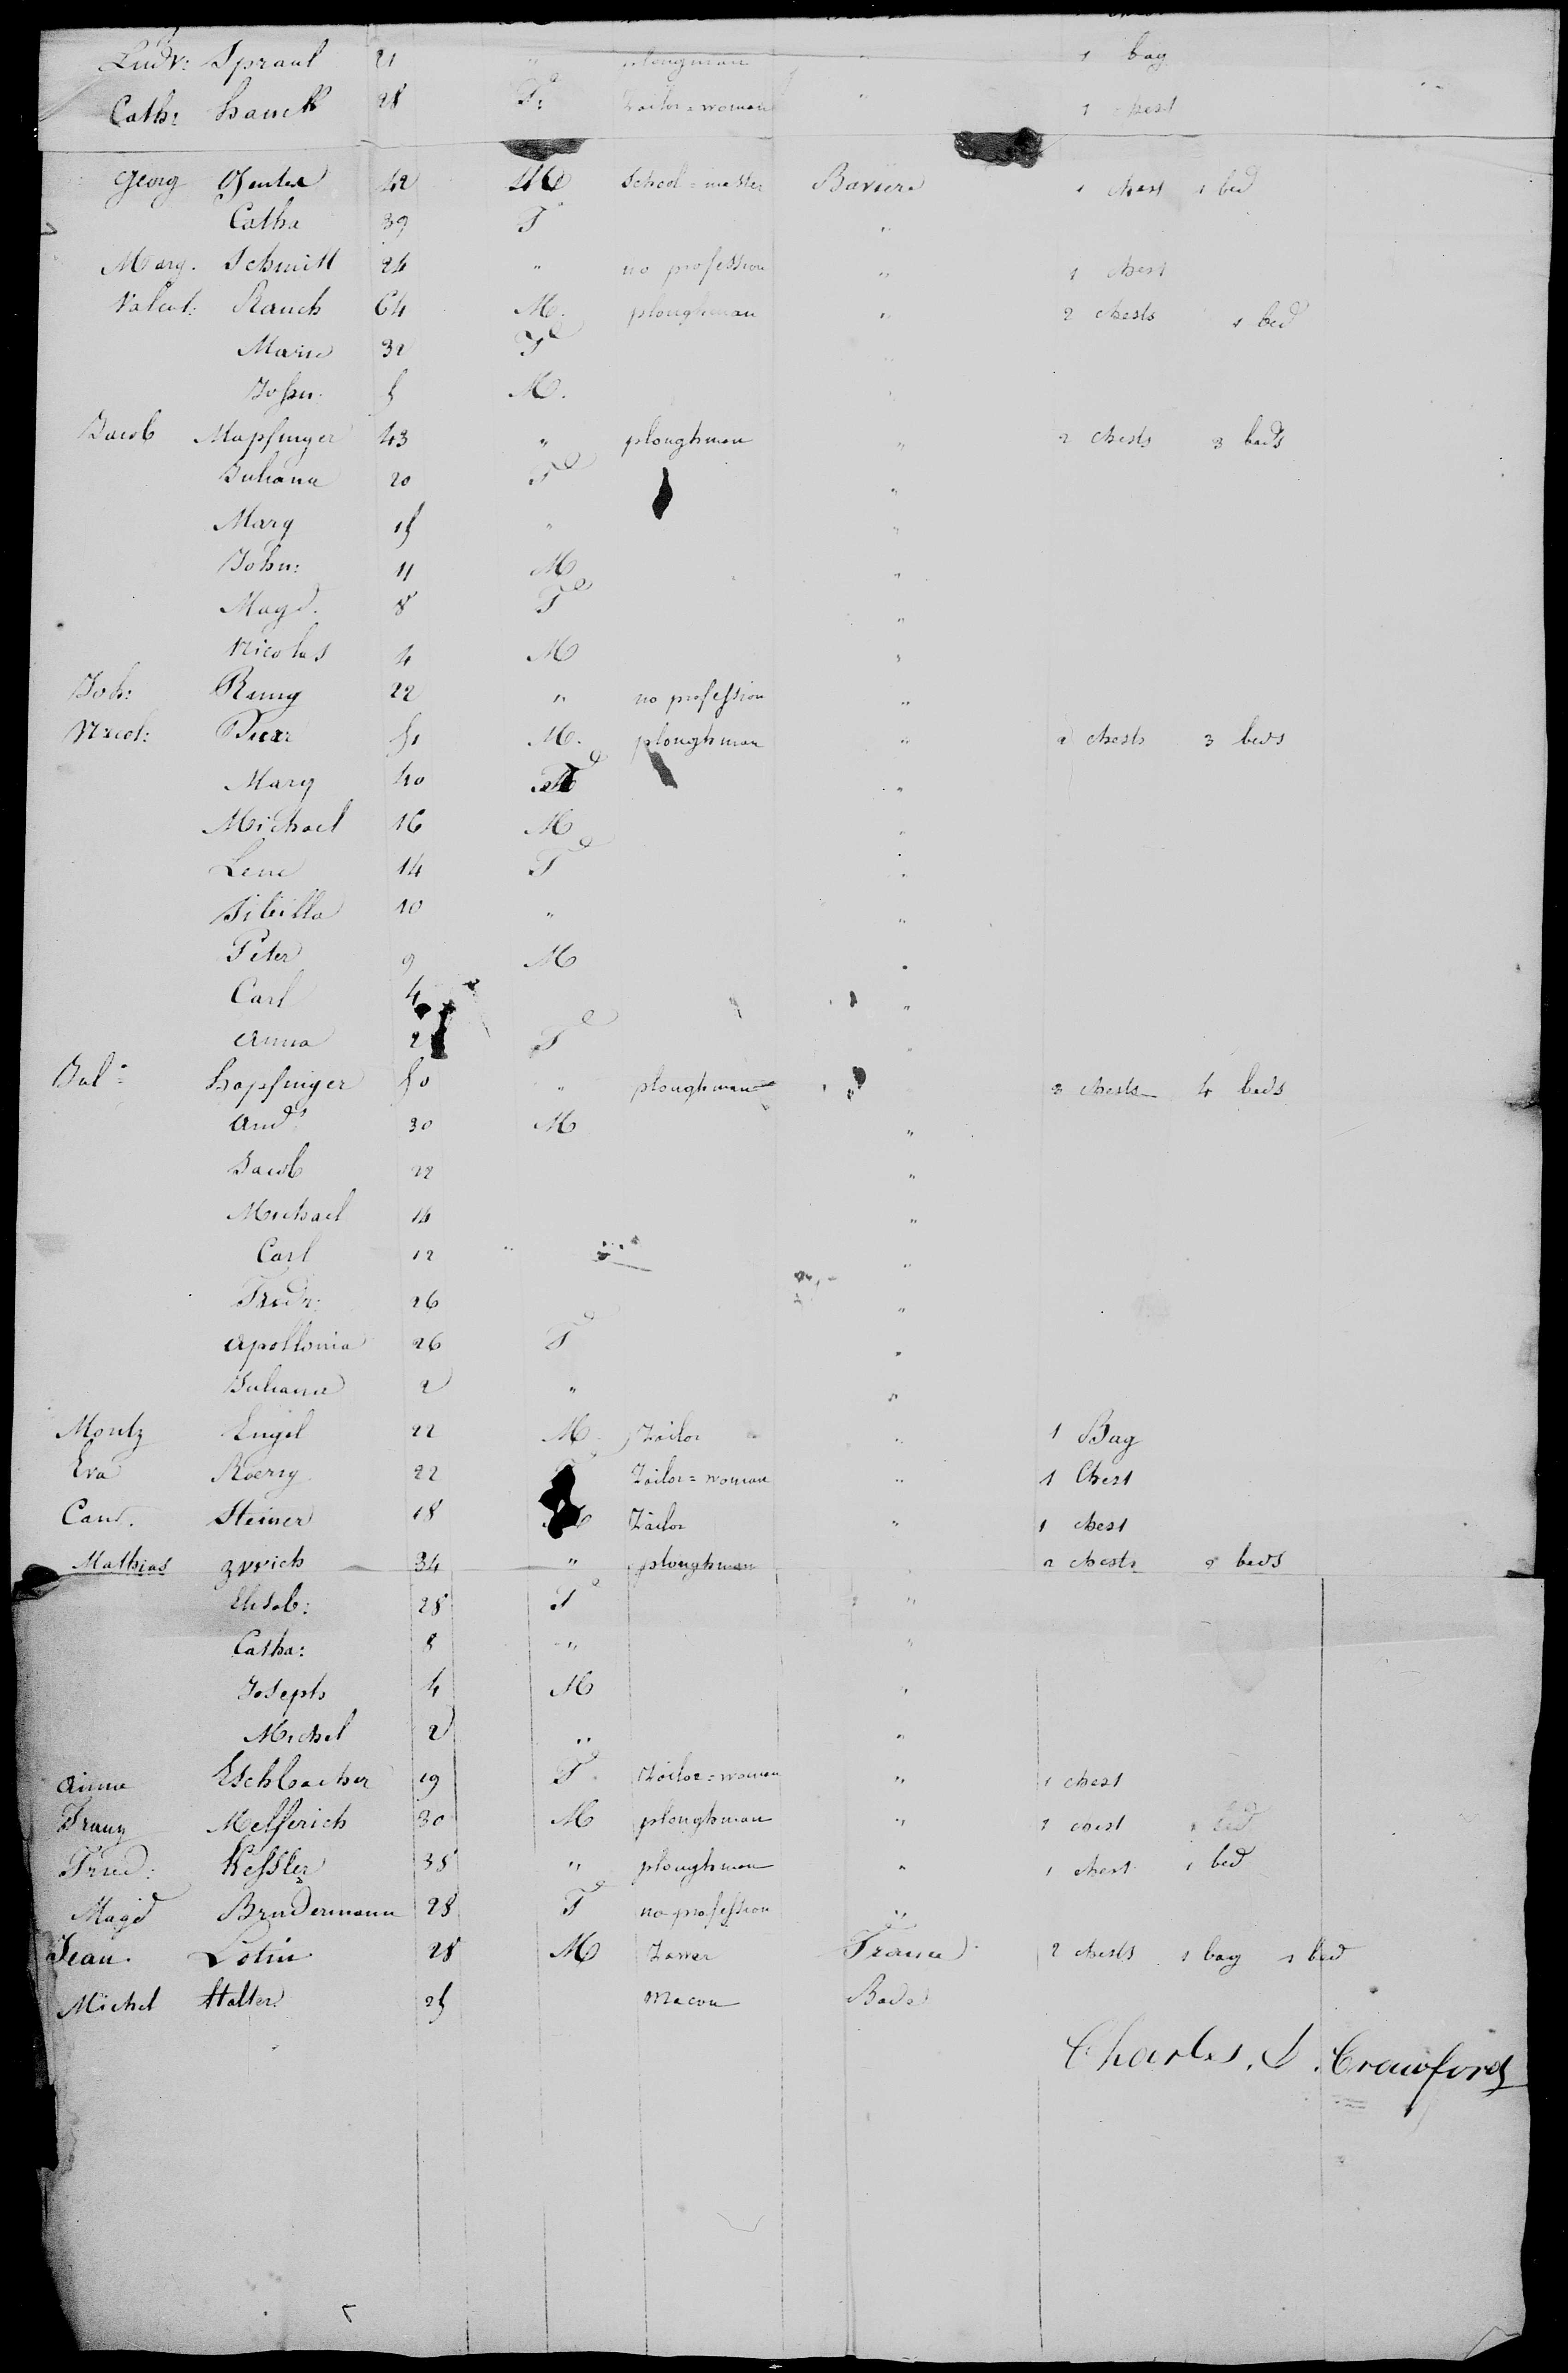 Ludv: Spraul 21 " ploughman " 1 bag
Cath: Hauck 28 F: Tailor=woman " 1 chest
Georg 42 M School=master Baviere 1 chest 1 bed
Catha 39 F "
Marg. Schmitt 24 " no profession " 1 chest
Valent: Rauch 64 M. ploughman " 2 chests 1 bed
Marie 32 F "
5 M. "
Jacob Mapfinger 43 " ploughman " 2 chests 3 beds
Juliana 20 F "
Marg 15 " "
John: 11 M "
Magd. 8 F "
Nicolas 4 M "
Joh: Rung 22 " no profession "
Nicol: 51 M. ploughman " 2 chests 3 beds
Marg 40 F "
Michael 16 M "
Lene 14 F "
Sibilla 10 " "
Peter 9 M "
Carl 4 "
Anna 2 F "
Hapfinger 50 " ploughman " 3 chests 4 beds
And: 30 M "
Jacob 22 "
Michael 14 "
Carl 12 " "
Fredr: 26 "
Apollonia 26 F "
Juliana 2 " "
Moritz Engel 22 M. Tailor " 1 Bag
Eva Koerig 22 Tailor=woman " 1 Chest
Steiner 18 M Tailor " 1 chest
Mathias zwich 34 " ploughman " 2 chests 2 beds
Elisab: 28 F "
Catha: 8 " "
Joseph 4 M "
Michel 2 " "
Anna Eschbacher 19 F Tailor=woman " 1 chest
Franz Melferich 30 M ploughman " 1 chest 1 bed
Fried: Kessler 38 " ploughman " 1 chest 1 bed
Magd Brudermann 28 F no profession "
Jean Lotin 28 M France 2 chests 1 bag 1 bed
Michel Halter 25 Macon Bade
Charles. S. Crawford